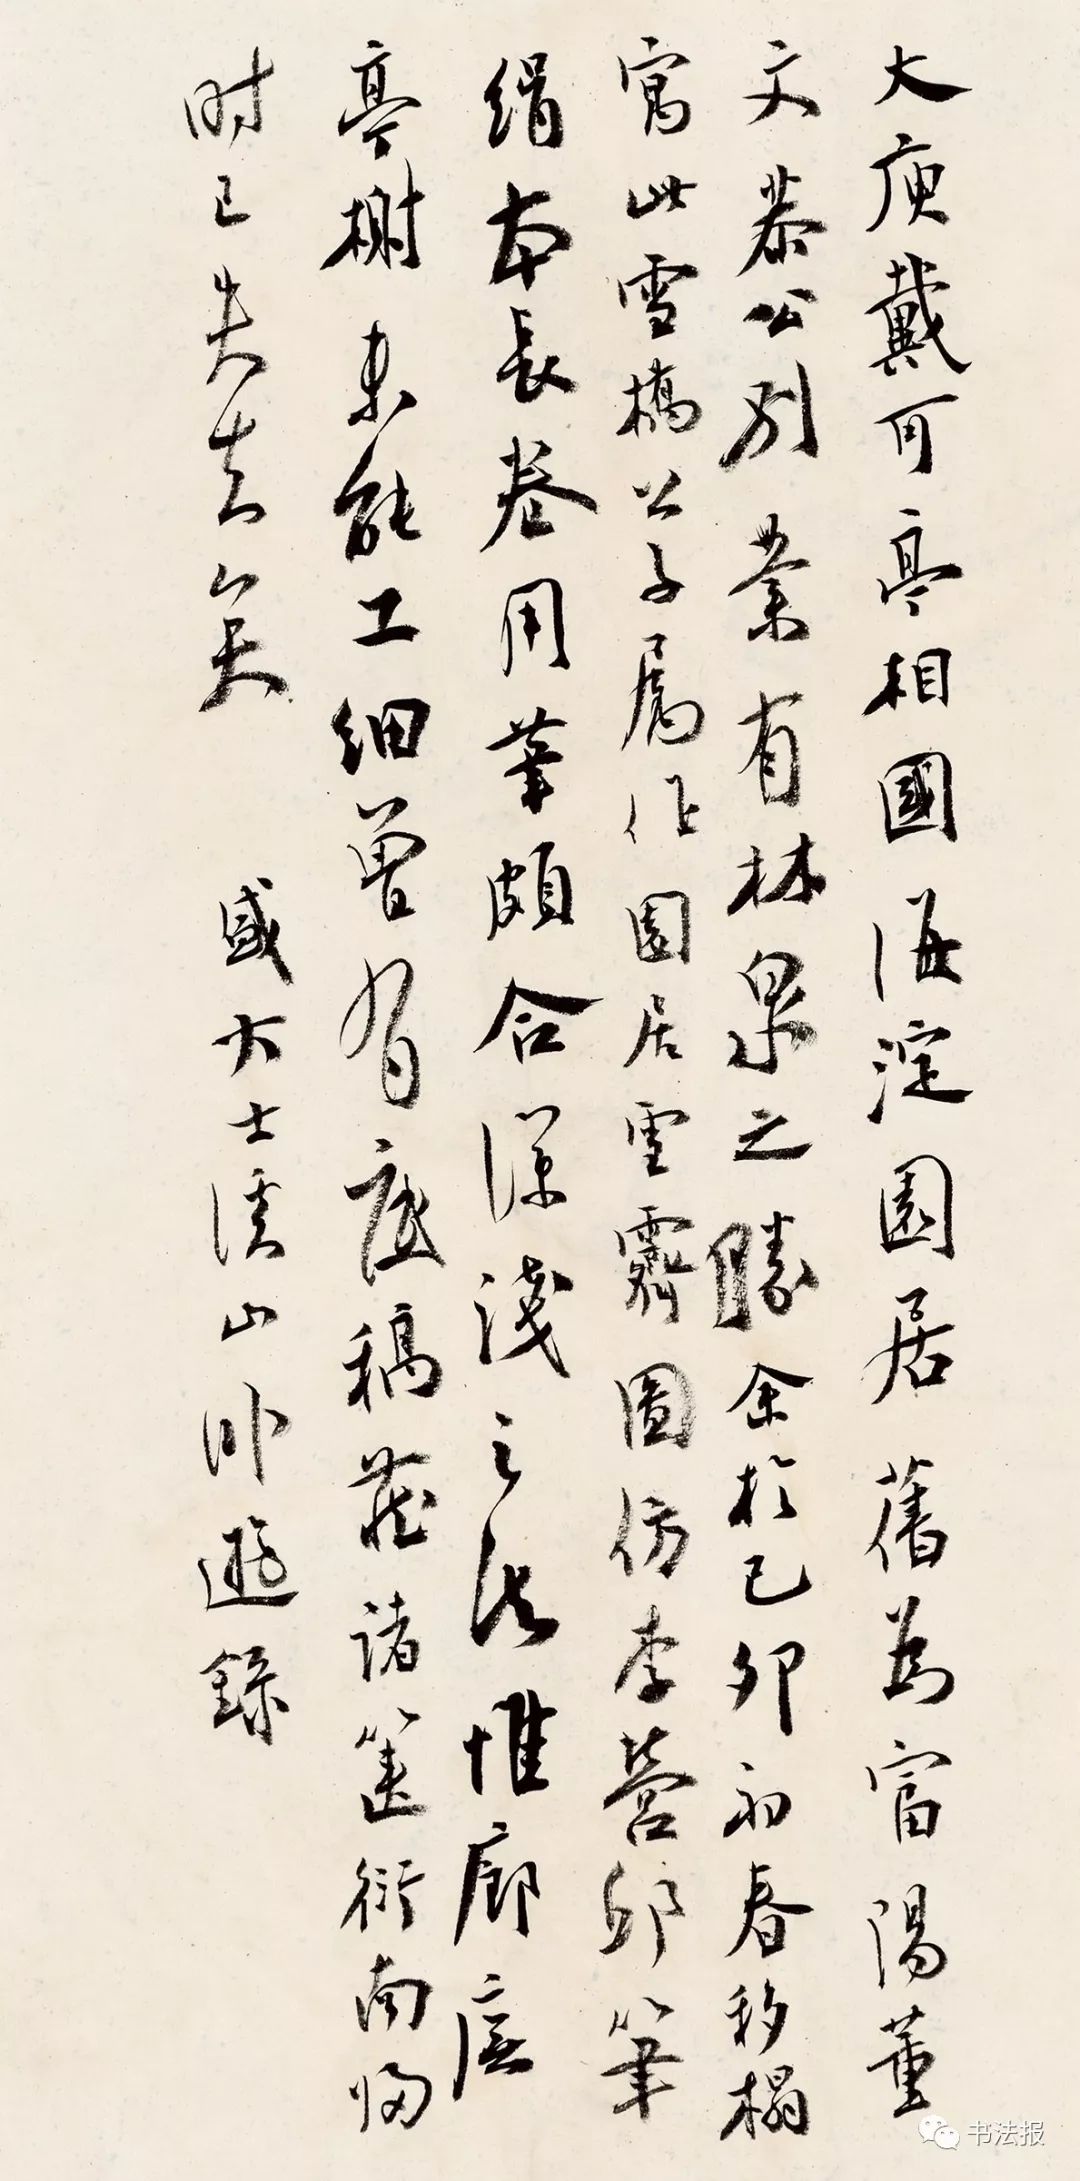 大庾戴可亭相國海淀園居舊為富陽董
文恭公別業有林泉之勝余於己卯初春移榻
寓此雪橋公子屬作園居雪霽圖仿李營邱筆
絹本長卷用筆頗合深淺之法惟廊廡
亭榭未能工細曾有底稿藏諸篋衍南歸
時已失去矣 盛大士溪山臥遊錄
书法报